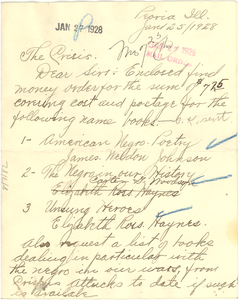 Peoria Ill.
Jan 25/1928
JAN 30 1928
The Crisis.
Dear Sirs: Enclosed find
money order for the sum of $7.75
covering cost and postage for the
following name books
1- American Negro Poetry
James Weldon Johnson
2- The Negro in our History
Carter G. Woodson
Elizabeth Ross Haynes
3 Unsung Heroes
Elizabeth Ross Haynes.
Also request a list of books
dealing in particular with
the negro in our wars, from
Crispus Attucks to date if such
is available